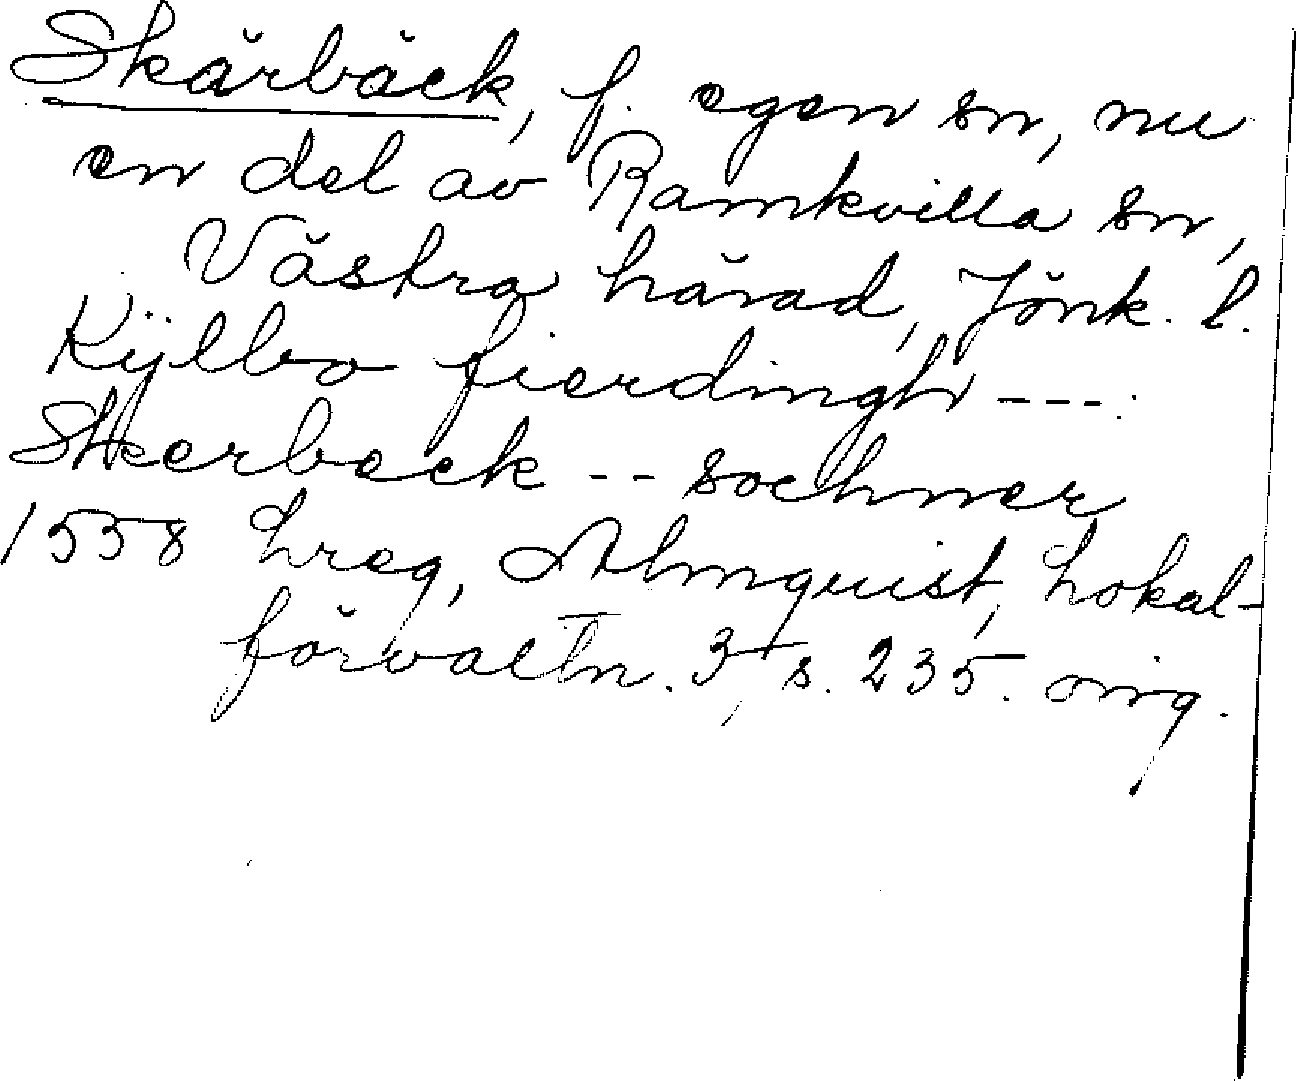 Skärbäck, f. egen sn, nu
en del av Ramkvilla sn,
Västra härad, Jönk. l.
Kÿlbo fierdingh ---:
Skerbeck -- sochner
1558 hreg, Almquist, Lokal-
förvaltn. 3, s. 235. orig.